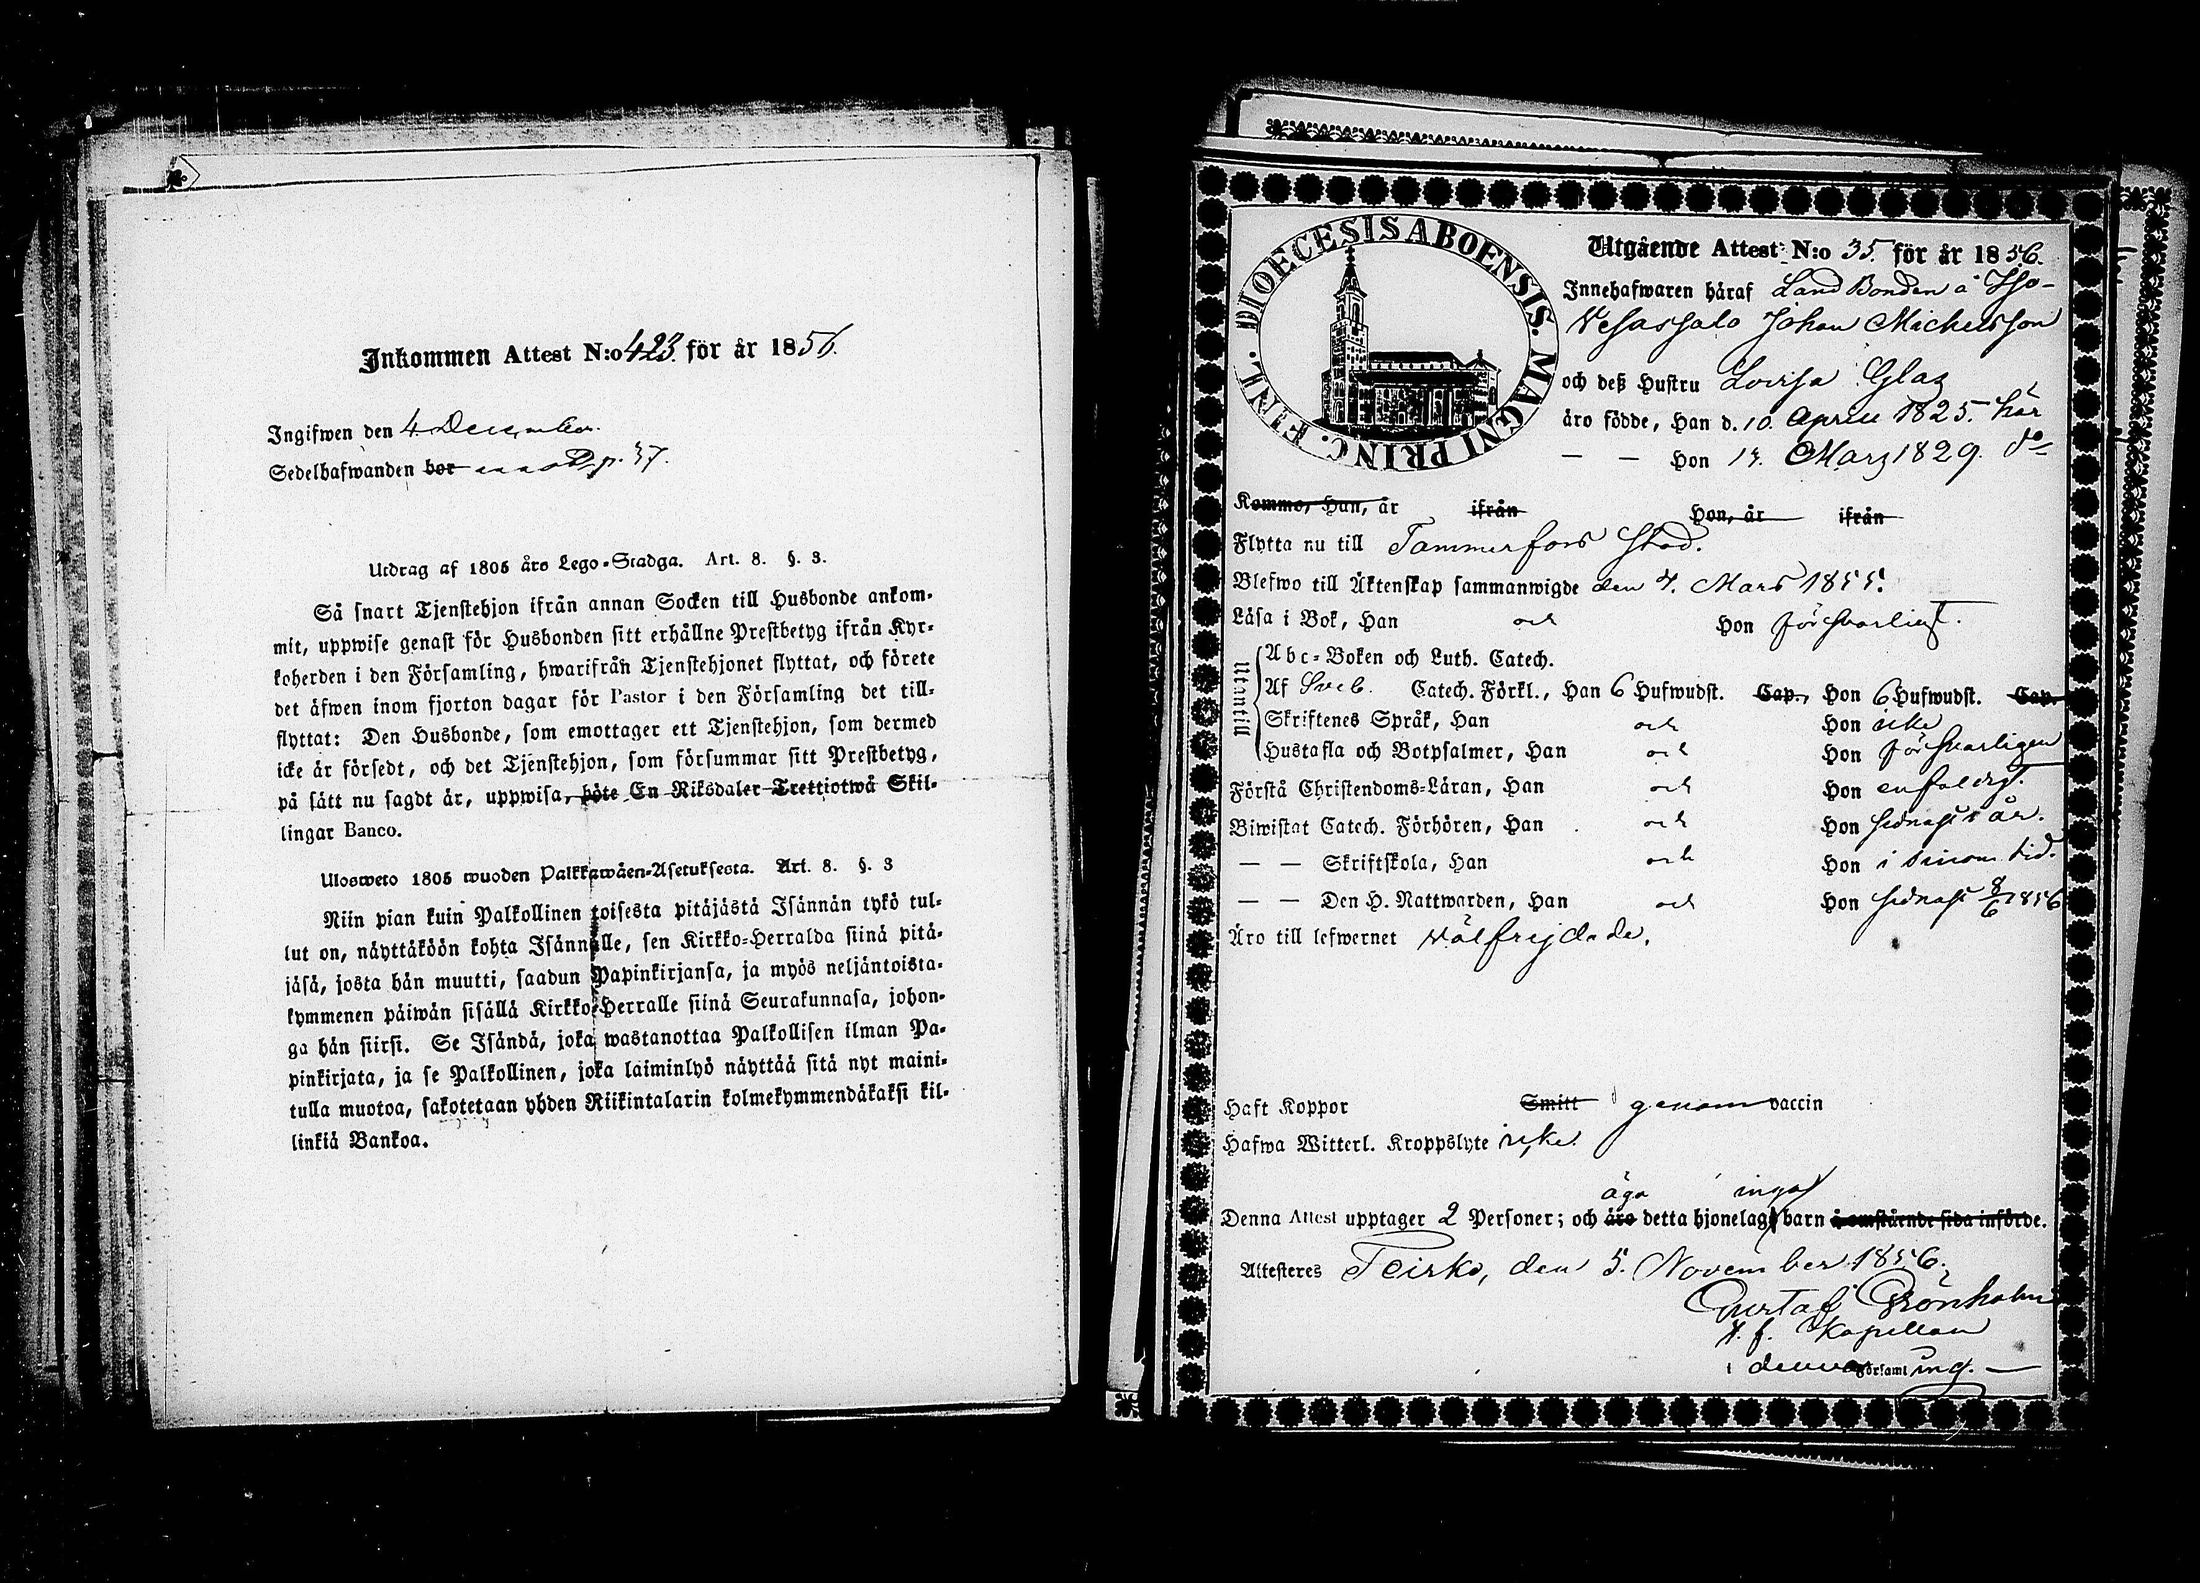 Inkommen Attest N:o 423. för år 1856.
Ingifwen den 4 December.
Sedelhafwanden bor p. 37.
Utdrag af 1805 års Lego-Stadga. Art. 8. §. 3.
Så snart Tjenstehjon ifrån annan Socken till Husbonde ankom-
mit, uppwise genast för Husbonden sitt erhållne Prestbetyg ifrån Kyr-
koherden i den Församling, hwarifrån Tjenstehjonet flyttat, och förete
det äfwen inom fjorton dagar för Pastor i den Församling det till-
flyttat: Den Husbonde, som emottager ett Tjenstehjon, som dermed
icke är försedt, och det Tjenstehjon, som försummar sitt Prestbetyg,
på sätt nu sagdt är, uppwisa, böte En Riksdaler Trettiotwå Skil-
lingar Banco.
Ulosweto 1805 wuoden Palkkawäen-Asetuksesta. Art. 8. §. 3
Niin pian kuin Palkollinen toisesta pitäjästä Isännän tykö tul-
lut on, näyttäköön kohta Isännälle, sen Kirkko-Herralda siinä pitä-
jäsä, josta hän muutti, saadun Papinkirjansa, ja myös neljäntoista-
kymmenen päiwän sisällä Kirkko-Herralle siinä Seurakunnasa, johon-
ga hän siirsi. Se Isändä, joka wastanottaa Palkollisen ilman Pa-
pinkirjata, ja se Palkollinen, joka laiminlyö näyttää sitä nyt maini-
tulla muotoa, sakotetaan yhden Riikintalarin kolmekymmendäkaksi kil-
linkiä Bankoa.
DIOECESIS ABOENSIS. MAGNI PRINC. FINL.
Utgående Attest N:o 35 för år 1856.
Innehafwaren häraf Land Bonden å Iso-
Vesassalo Johan Mickelsson
och deß Hustru Lovisa Glaz
äro födde, Han d. 10. April 1825. här
— — Hon 14. Marz 1829. do
Komme, Han, år ifrån Hon, år ifrån
Flytta nu till Tammerfors Stad.
Blefwo till Äktenskap sammanwigde den 4. Mars 1855.
Läsa i Bok, Han och Hon försvarligt.
Utantill
Abc-Boken och Luth. Catech.
Af Sveb. Catech. Förkl., Han 6 Hufwudst. Cap., Hon 6 Hufwudst. Cap.
Skriftenes Språk, Han och Hon icke
Hustafla och Botpsalmer, Han och Hon försvarligen
Förstå Christendoms-Läran, Han och Hon enfaldigt.
Biwistat Catech. Förhören, Han och Hon sednast i år.
— — Skriftskola, Han och Hon i sinom tid.
— — Den H. Nattwarden, Han och Hon sednast 8/6 1856
Äro till lefwernet välfrejdade.
Haft Koppor Smitt genom vaccin
Hafwa Witterl. Kroppslyte icke.
äga inga
Denna Attest upptager 2 Personer; och äro detta hjonelags barn å omstående sida införde.
Attesteres Teisko, den 5. November 1856.
Gustaf Grönholm
v. f. Kapellan
i denna Församling.